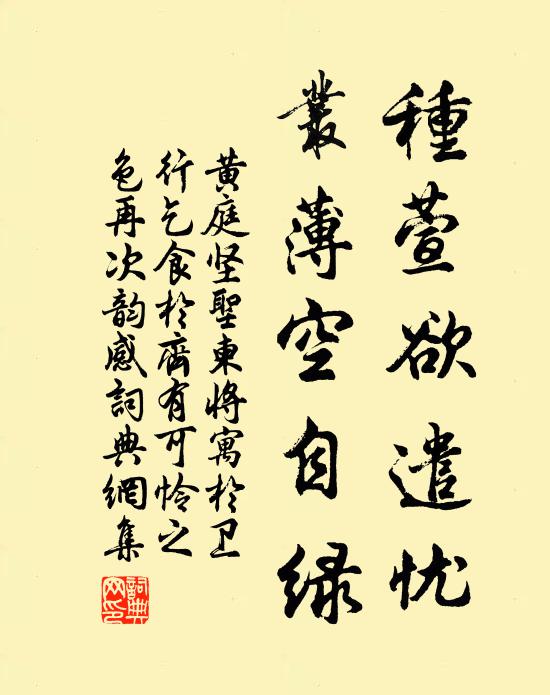 種萱欲遣忧
叢薄空自绿
黄庭坚聖東将寓於卫
行乞食於齊有可怜之
色再次韵感詞典網集